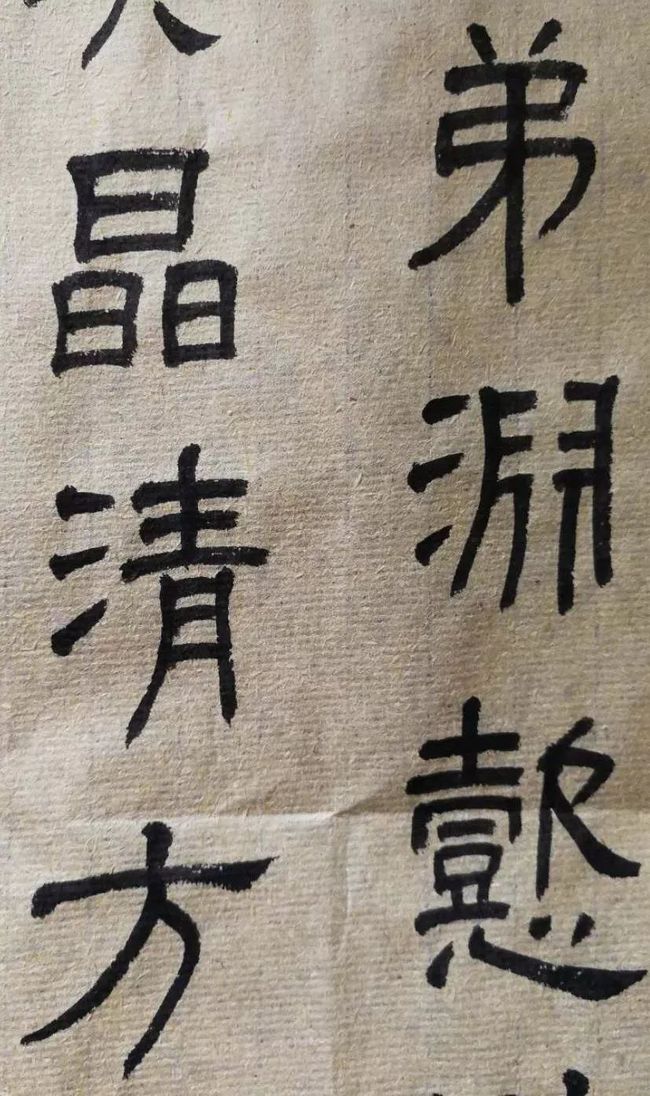 弟淵懿
晶清方